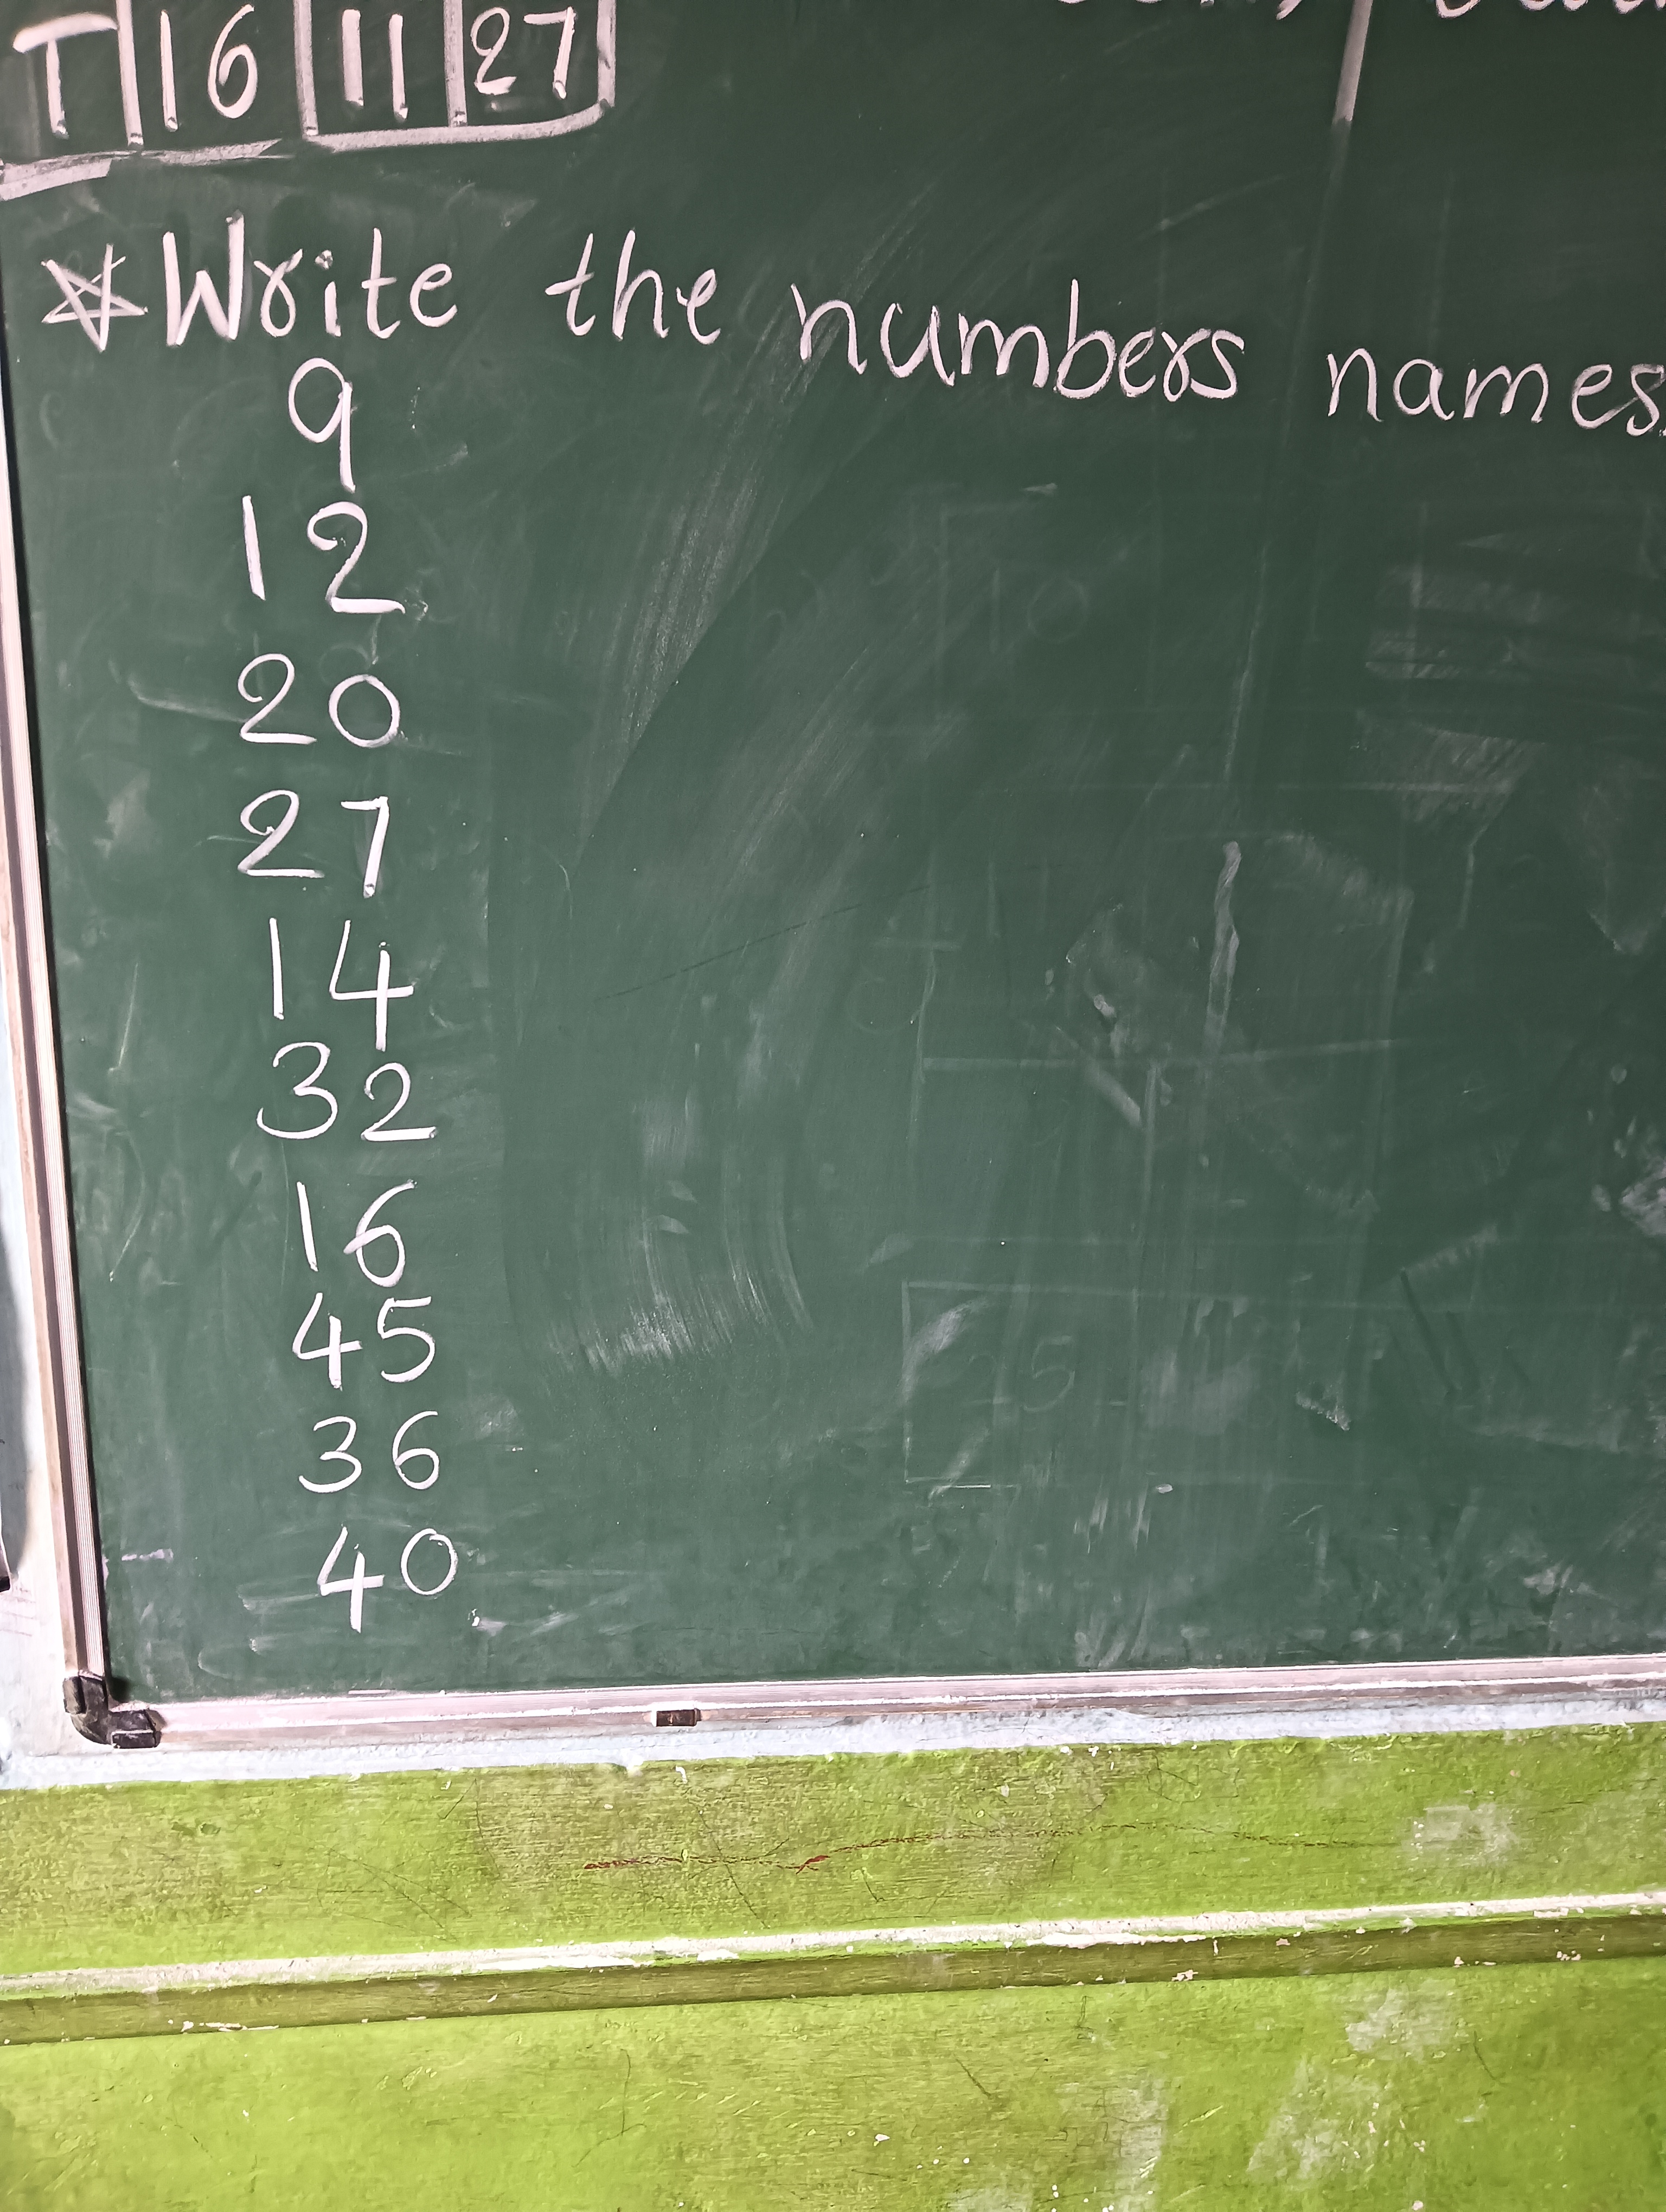 T 16 11 27
Write the numbers names.
9
12
20
27
14
32
16
45
36
40